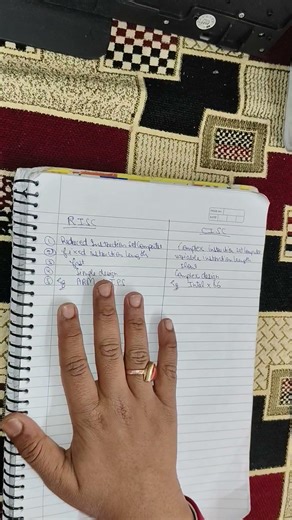 RISC CISC
① Reduced Instruction Set Computer Complex Instruction Set Computer
② fixed instruction length variable instruction length
③ fast
④ simple design Complex design
⑤ Eg ARM Eg Intel x 86